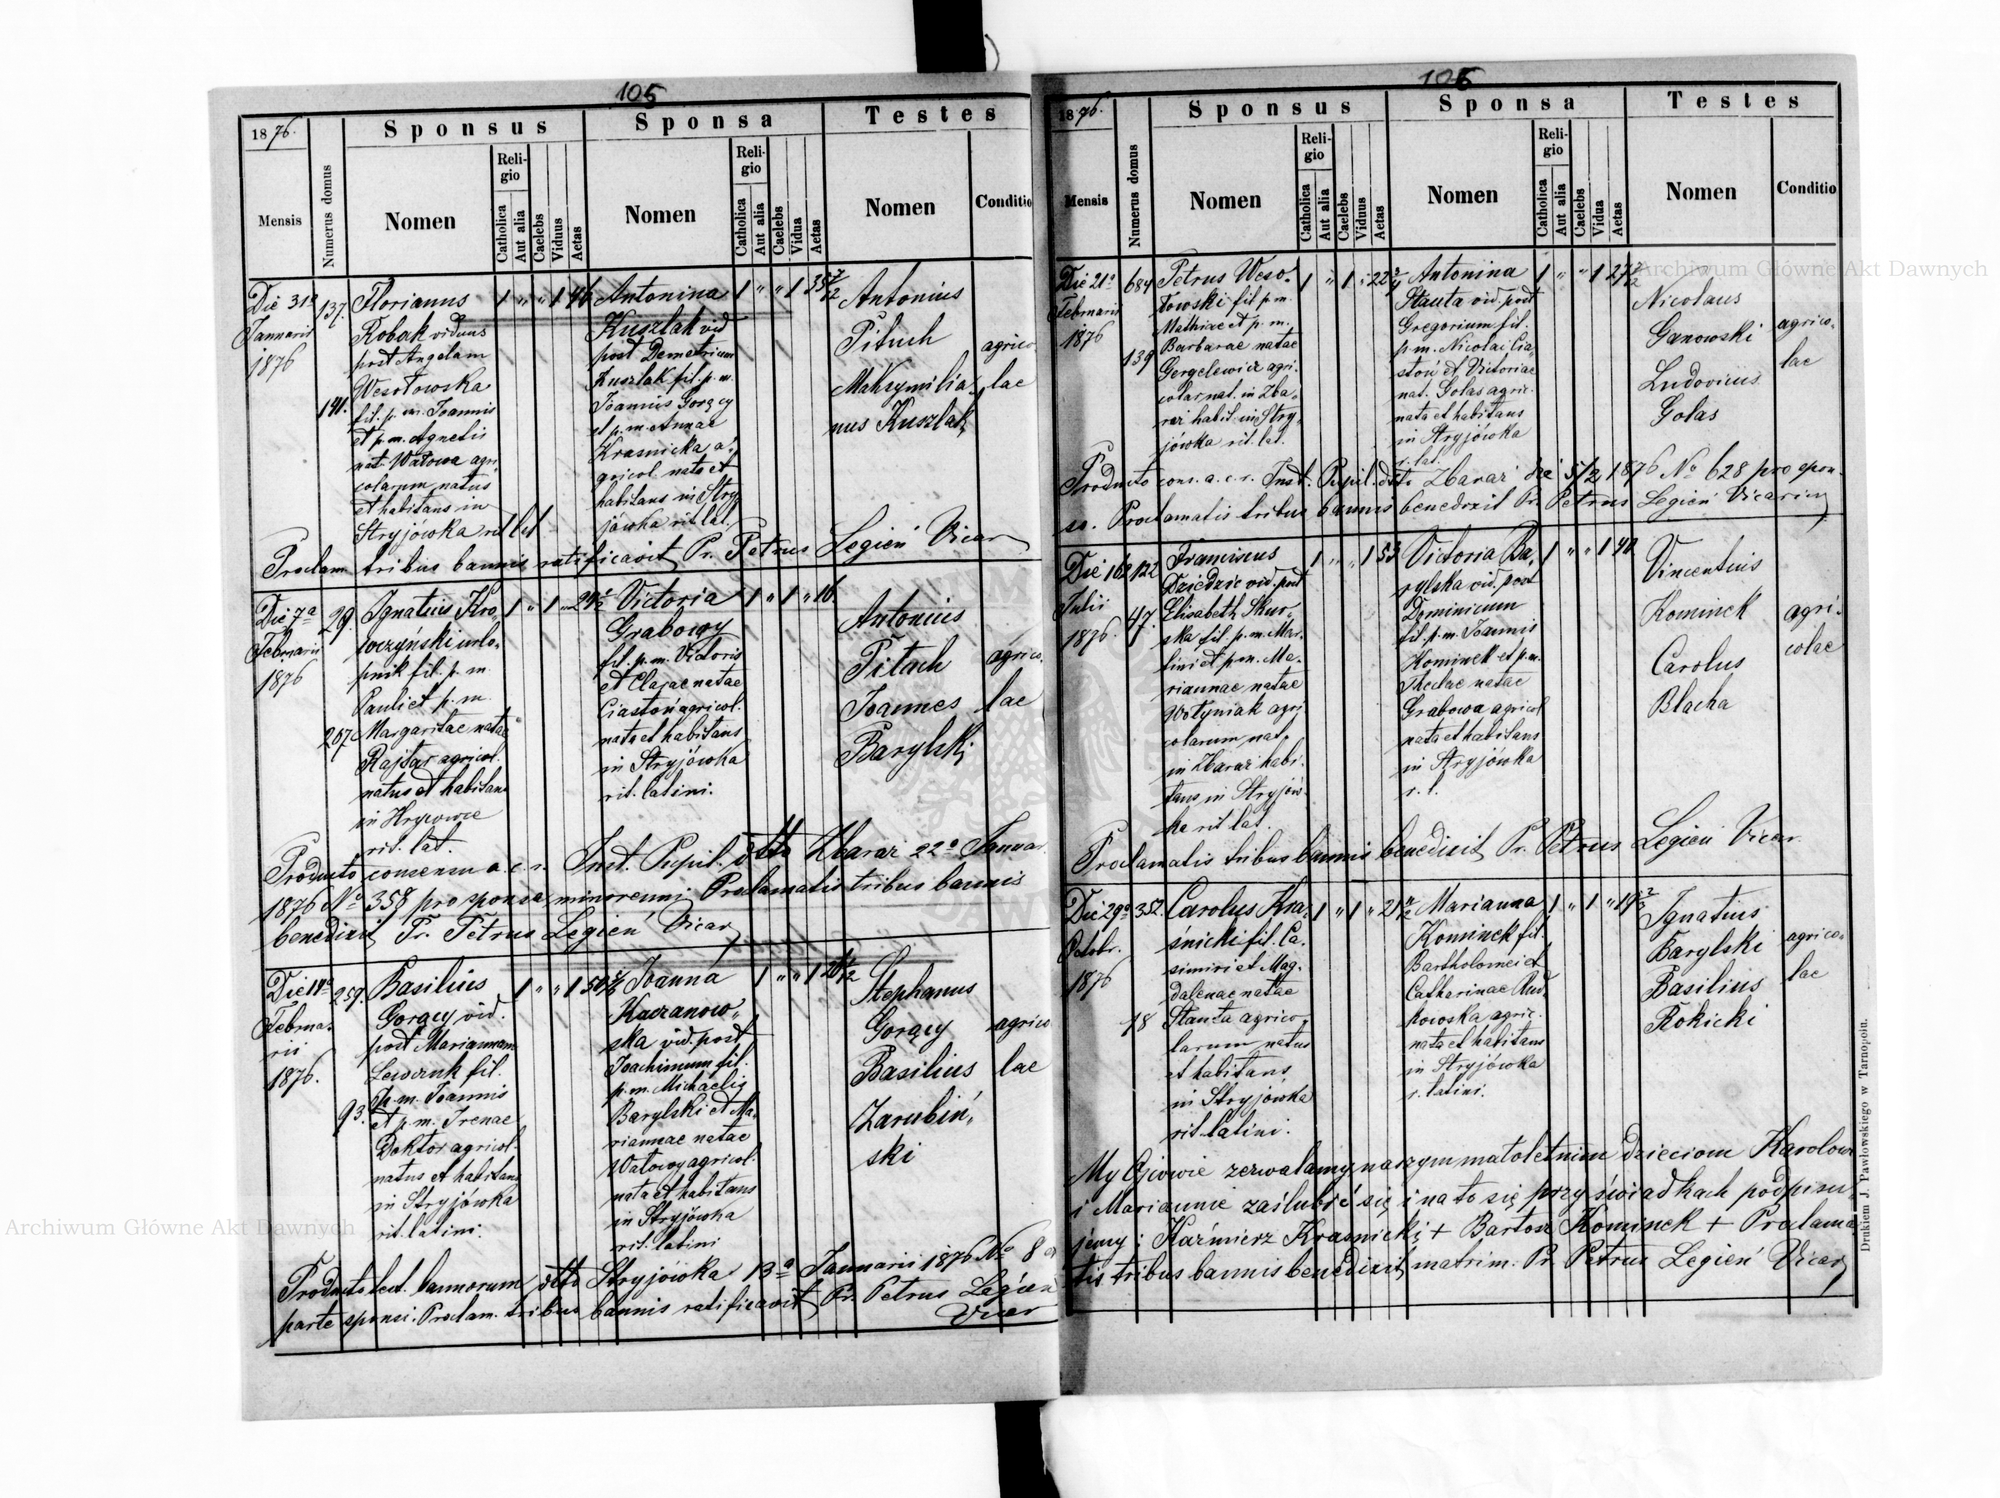 105
1876.
Sponsus
Sponsa
Testes
Mensis
Numerus domus
Nomen
Religio
Catholica
Aut alia
Caelebs
Viduus
Aetas
Nomen
Religio
Catholica
Aut alia
Caelebs
Vidua
Aetas
Nomen
Conditio
Die 31a
Januarii
1876
137.
141.
Florianus
Robak viduus
post Angelam
Wesołowska
fil. p. m. Joannis
et p. m. Agnetis
nat. Watowa agri
colarum natus
et habitans in
Stryjówka rit lat.
1 " " 1 46
Antonina
Kuszlak vid
post Demetrium
Kuszlak fil. p. m.
Joannis Gorący
et p. m. Annae
Krasnicka a-
gricol. nata et
habitans in Stry
jówka rit. lat.
1 " " 1
Antonius
Pituch
Maksymilia
nus Kuszlak
agrico
lae
Proclam. tribus bannis ratificavit Pr. Petrus Legień Vicar
Die 7a
Februarii
1876
29.
207
Ignatius Kro
woczyński urlo-
pnik fil. p. m.
Pauli et p. m.
Margaritae natae
Rajtar agricol.
natus et habitans
in Hrycowce
rit. lat.
1 " 1 "
Victoria
Grabowy
fil. p. m. Victoris
et Clarae natae
Ciastoń agricol.
nata et habitans
in Stryjówka
rit. latini.
1 " 1 " 16.
Antonius
Pituch
Joannes
Barylski
agrico
lae
Producto consensu a. c. r. Inst. Pupil. dtto Zbaraż 22a Januar.
1876 No 358 pro sponsa minorenni Proclamatis tribus bannis
benedixit Pr. Petrus Legień Vicar
Die 14a
Februa-
rii
1876.
259.
93.
Basilius
Gorący vid.
post Mariannam
Lewczuk fil.
p. m. Joannis
et p. m. Irenae
Doktor agricol.
natus et habitans
in Stryjówka
rit. latini.
1 " " 1
Joanna
Kaczanow-
ska vid. post
Joachimum fil.
p. m. Michaelis
Barylski et Ma-
riannae natae
Watowy agricol.
nata et habitans
in Stryjówka
rit. latini
1 " " 1
Stephanus
Gorący
Basilius
Zarubiń-
ski
agrico
lae
Producto test. bannorum dtto Stryjówka 13a Januarii 1876 No 8 a
parte sponsi. Proclam. tribus bannis ratificavit Pr. Petrus Legień
Vicar
106
1876.
Sponsus
Sponsa
Testes
Mensis
Numerus domus
Nomen
Religio
Catholica
Aut alia
Caelebs
Viduus
Aetas
Nomen
Religio
Catholica
Aut alia
Caelebs
Vidua
Aetas
Nomen
Conditio
Die 21a
Februarii
1876
684
139
Petrus Weso-
łowski fil. p. m.
Mathiae et p. m.
Barbarae natae
Gergelewicz agri-
colar. nat. in Zba-
raż habit. in Stry-
jówka rit. lat.
1 " 1 "
Antonina
Stauta vid. post
Gregorium fil.
p. m. Nicolai Cia-
stoń et Victoriae
nat. Golas agric.
nata et habitans
in Stryjówka
r. lat.
1 " " 1
Nicolaus
Ganowski
Ludovicus
Golas
agrico-
lae
Producto cons. a. c. r. Inst. Pupil. dtto Zbaraż die 5/2 1876 No 628 pro spon-
so. Proclamatis tribus bannis benedixit Pr. Petrus Legień Vicarius
Die 16a
Julii
1876.
122
47.
Franciscus
Dziedzic vid. post
Elisabeth Skur-
ska fil. p. m. Mar-
tini et p. m. Ma-
riannae natae
Wołyniak agri
colarum nat.
in Zbaraż habi-
tans in Stryjów-
ka rit lat.
1 " " 1 53
Victoria Ba-
rylska vid. post
Dominicum
fil. p. m. Joannis
Kominek et p. m.
Theclae natae
Grabowa agricol
nata et habitans
in Stryjówka
r. l.
1 " " 1
Vincentius
Kominek
Carolus
Blacha
agri-
colae
Proclamatis tribus bannis benedixit Pr. Petrus Legień Vicar.
Die 29a
Octobr.
1876
352.
78
Carolus Kra-
śnicki fil. Ca-
simiri et Mag-
dalenae natae
Stauta agrico-
larum natus
et habitans
in Stryjówka
rit. latini.
1 " 1 "
Marianna
Kominek fil.
Bartholomei et
Catharinae Rud-
kowska agric.
nata et habitans
in Stryjówka
r. latini.
1 " 1 "
Ignatius
Barylski
Basilius
Rokicki
agrico-
lae
My Ojcowie zezwalamy naszym małoletnim dzieciom Karolowi
i Mariannie zaślubić się i na to się przy świadkach podpisu-
jemy: Kaźmierz Krasnicki + Bartosz Kominek + Proclama
tis tribus bannis benedixit matrim. Pr. Petrus Legień Vicar
Drukiem J. Pawłowskiego w Tarnopolu.
Archiwum Główne Akt Dawnych
Archiwum Główne Akt Dawnych